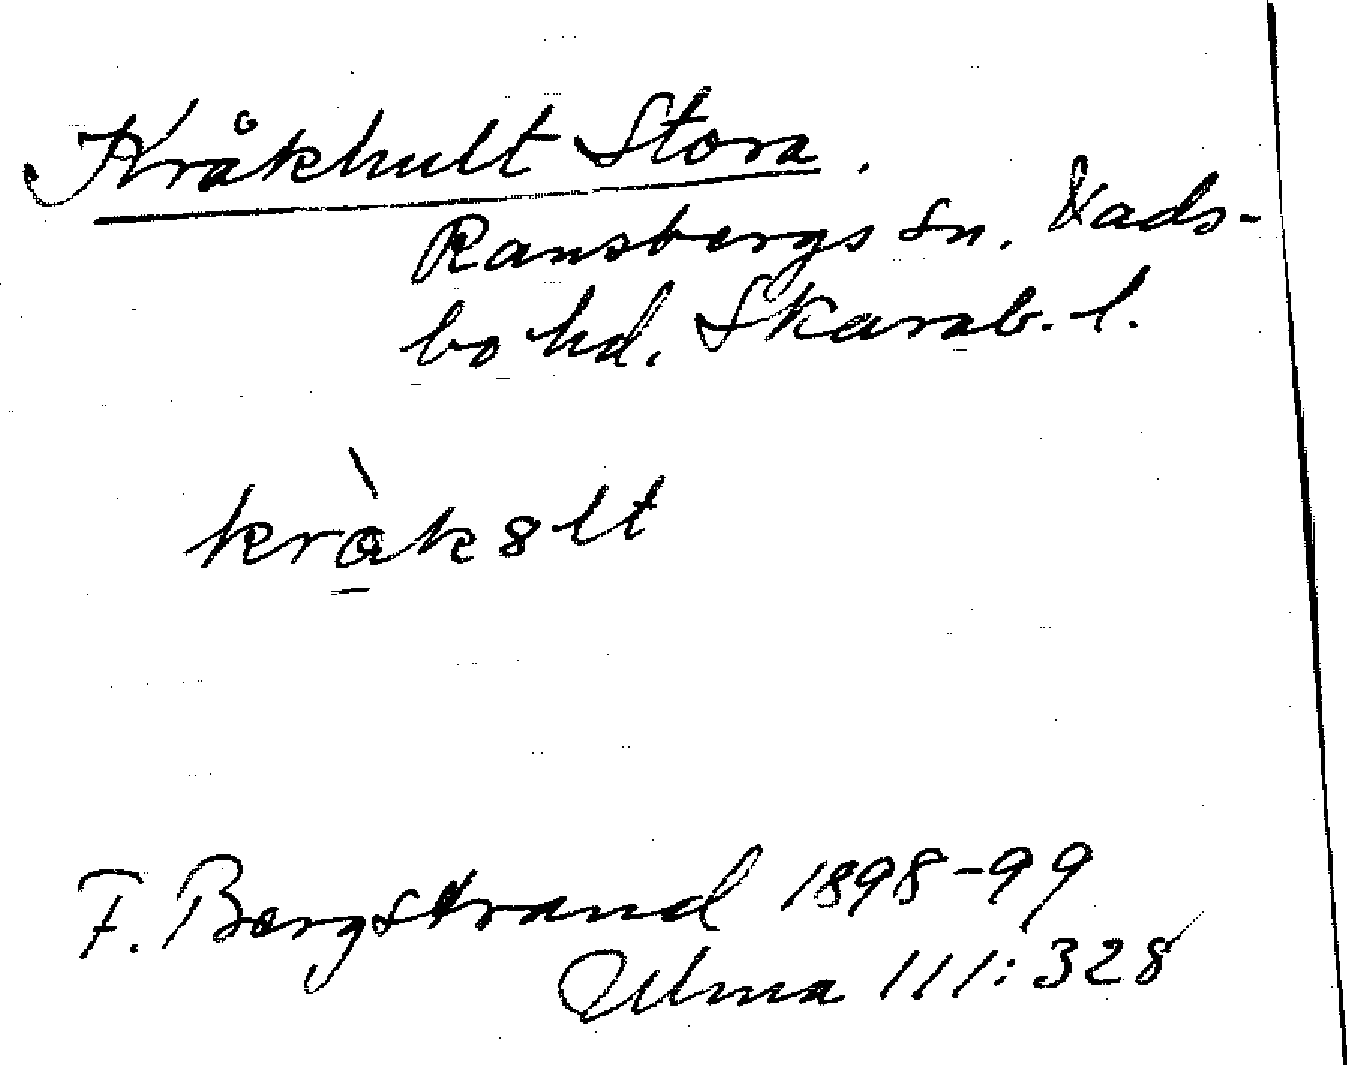 Kråkhult Stora.
Ransbergs sn. Kads-
bo hd. Skarab. l.
kràk8lt
F. Bergstrand 1898-99
Ulma 111:328